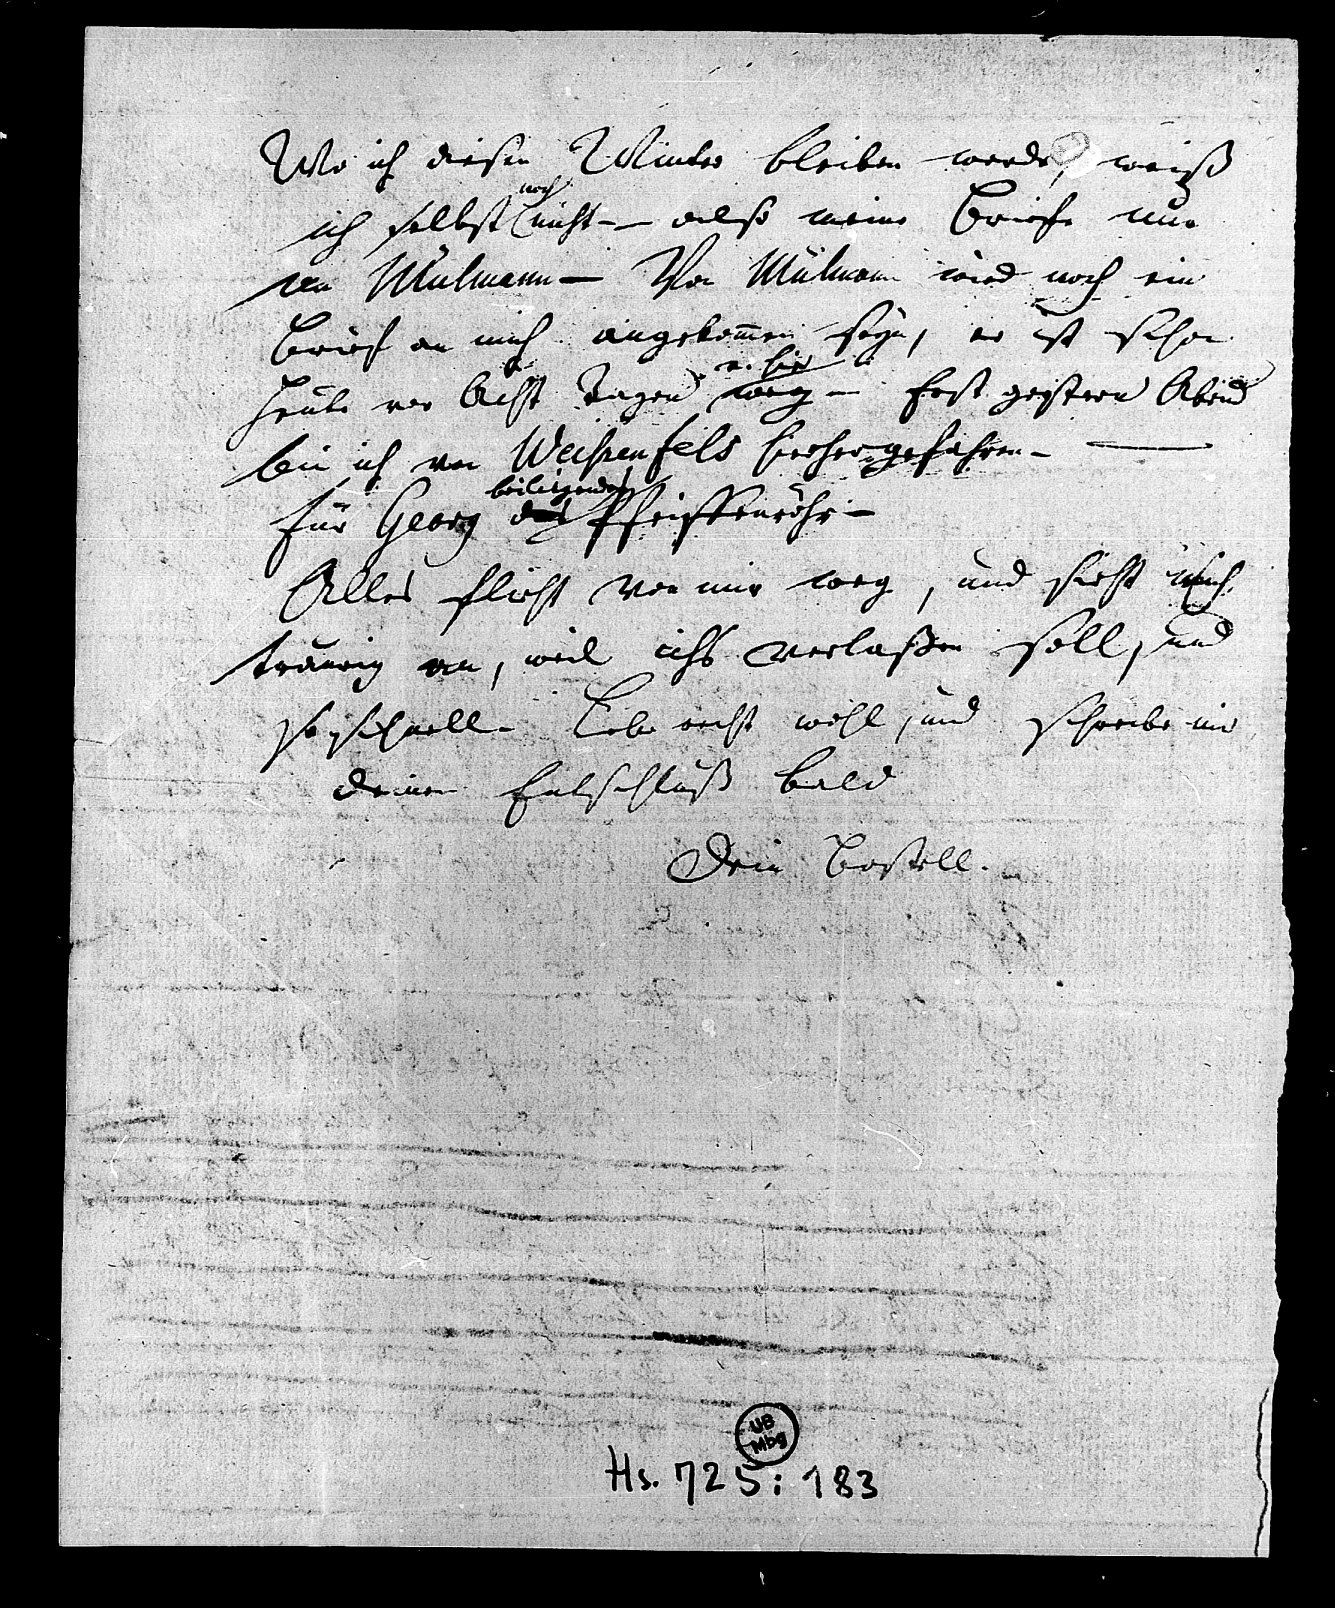 Wo ich diesen Winter bleiben werde, weiß
ich selbst noch nicht — also meine Briefe nur
an Mülmann — Von Mülmann wird noch ein
Brief an mich angekommen seyn, er ist schon
heute vor Acht Tagen v. hier weg — Erst gestern Abend
bin ich von Weißenfels hierher gefahren. —
Für Georg beiliegendes Pfeiffenrohr —
Alles flieht von mir weg, und sieht mich
traurig an, weil ichs verlaßen soll, und
so schnell. Lebe recht wohl, und schreibe mir
deinen Entschluß bald
Dein Bostell.
UB
Mbg
Hs. 725: 183